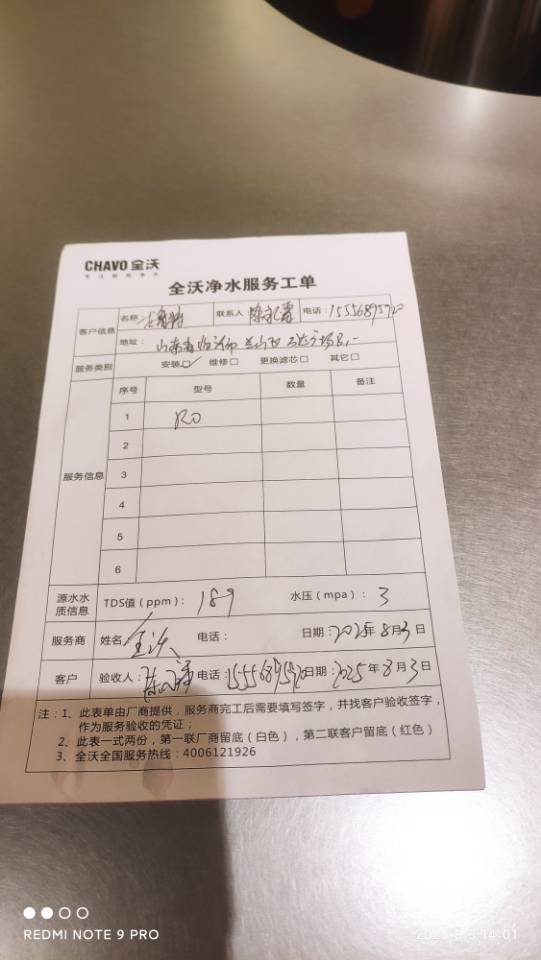 CHAVO 全沃
全沃净水服务工单
客户信息
名称：
联系人：陈
电话：15556895920
地址：山东省临沂市兰山区
服务类别
安装☑ 维修□ 更换滤芯□ 其它□
服务信息
序号 型号 数量 备注
1 RO
2
3
4
5
6
源水水质信息
TDS值（ppm）：189 水压（mpa）：3
服务商 姓名 全沃 电话： 日期：2025年8月3日
客户 验收人：陈 电话：15556895920 日期：2025年8月3日
注：1、此表单由厂商提供，服务商完工后需要填写签字，并找客户验收签字，
作为服务验收的凭证；
2、此表一式两份，第一联厂商留底（白色），第二联客户留底（红色）
3、全沃全国服务热线：4006121926
REDMI NOTE 9 PRO